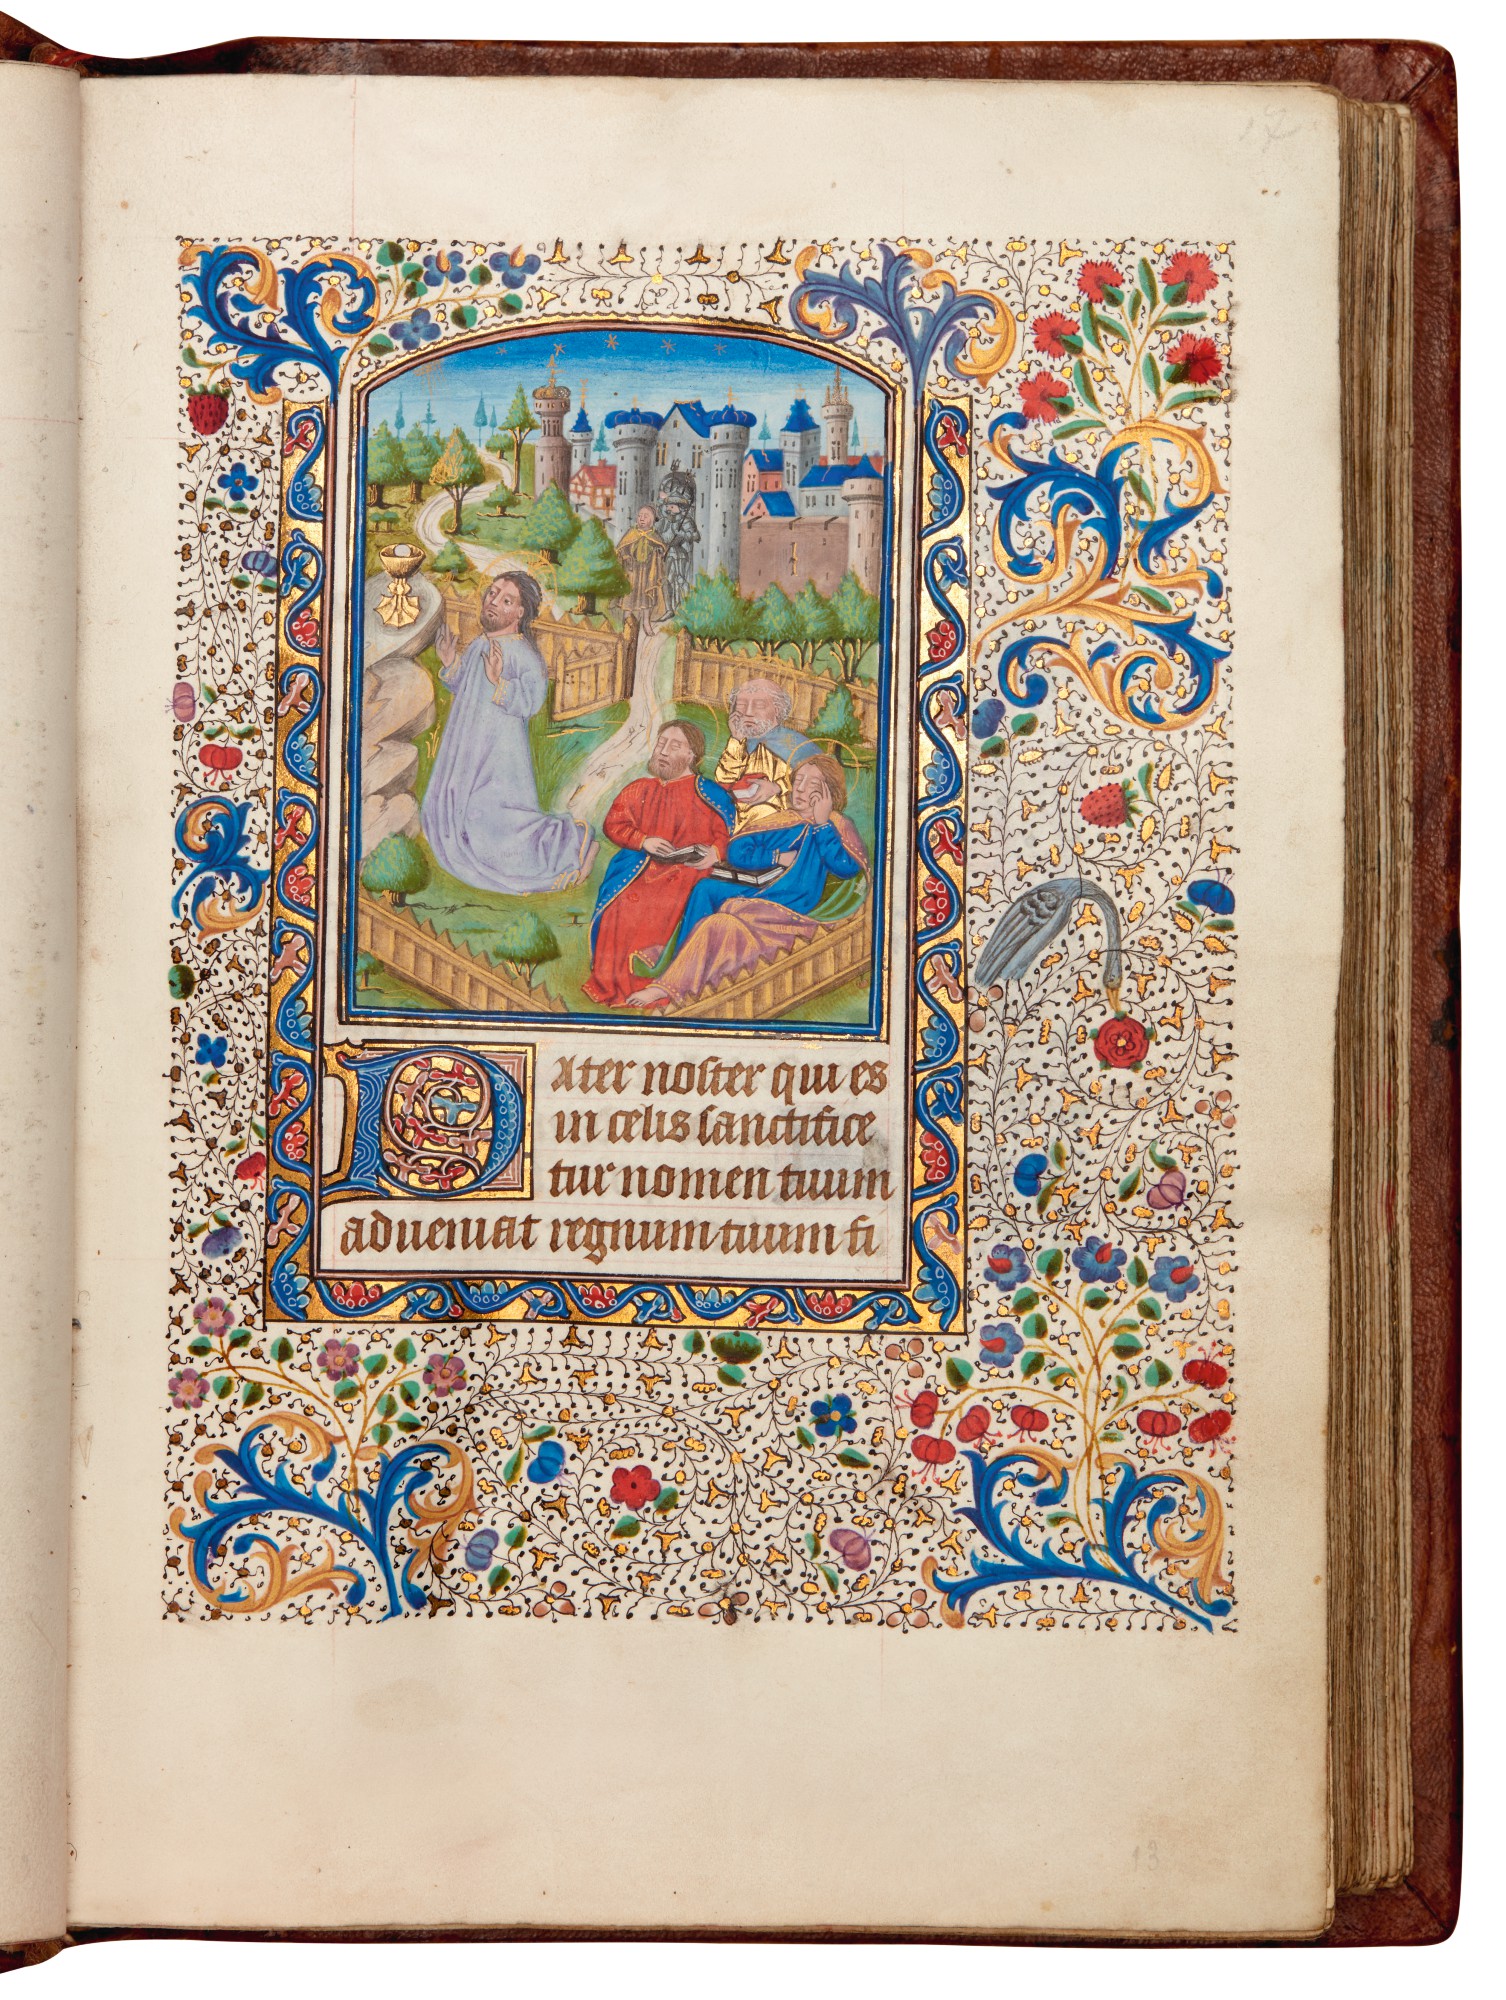 17
Pater noster qui es
in celis sanctifice
tur nomen tuum
adueniat regnum tuum fi
13